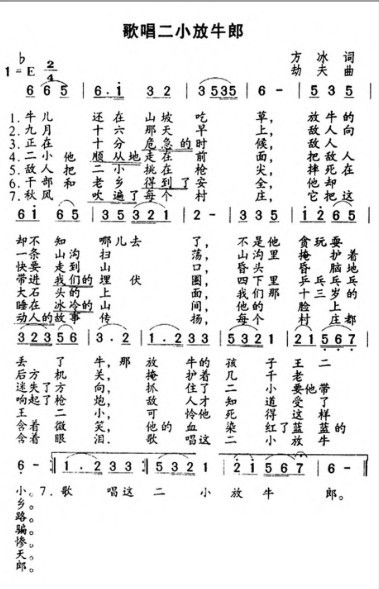 歌唱二小放牛郎
♭ 2/4 方冰 词
1=E 劫夫 曲
6 6 5 | 6. i 3 2 | 3 5 3 5 | 6 - | 5 3 5
1.牛儿 还在 山坡 吃 草, 放牛的
2.九月 十六 那天 早 上, 敌人向
3.正在 十分 危急的时 候, 敌人
4.二小他 顺从地走在 前 面, 把敌人
5.敌人把 二小 挑在 枪 尖, 摔死在
6.干部和 老乡 得到了安 全, 他却
7.秋风 吹遍了每个 村 庄, 它把这
却不知 哪儿去 了, 不是他 贪玩耍
一条山沟 扫 荡, 山沟里 掩护着
快要走到 山 口, 昏头 昏脑地
带进我们的埋伏 圈, 四下里 乒乓
大石头的上 面, 我们那 十三岁
睡在冰冷的山 间, 他的 脸上
动人的故事传 扬, 每个 村庄都
丢了 牛,那 放牛的 孩子王二
后方机 关, 掩护着 几千老
失了方 向, 抓住了 二小要他带
响起了枪 炮, 敌人才 知道受了
王二 小, 可怜他 死得这样
含着微 笑, 他的血 染红了蓝蓝的
含着眼 泪. 歌唱这 二小放牛
6 - :‖ i. 2 3 3 | 5 3 2 1 | 2 i 5 6 7 | 6 - :‖
小。7.歌 唱这 二小放牛 郎。
乡。
路。
骗。
惨。
天。
郎。